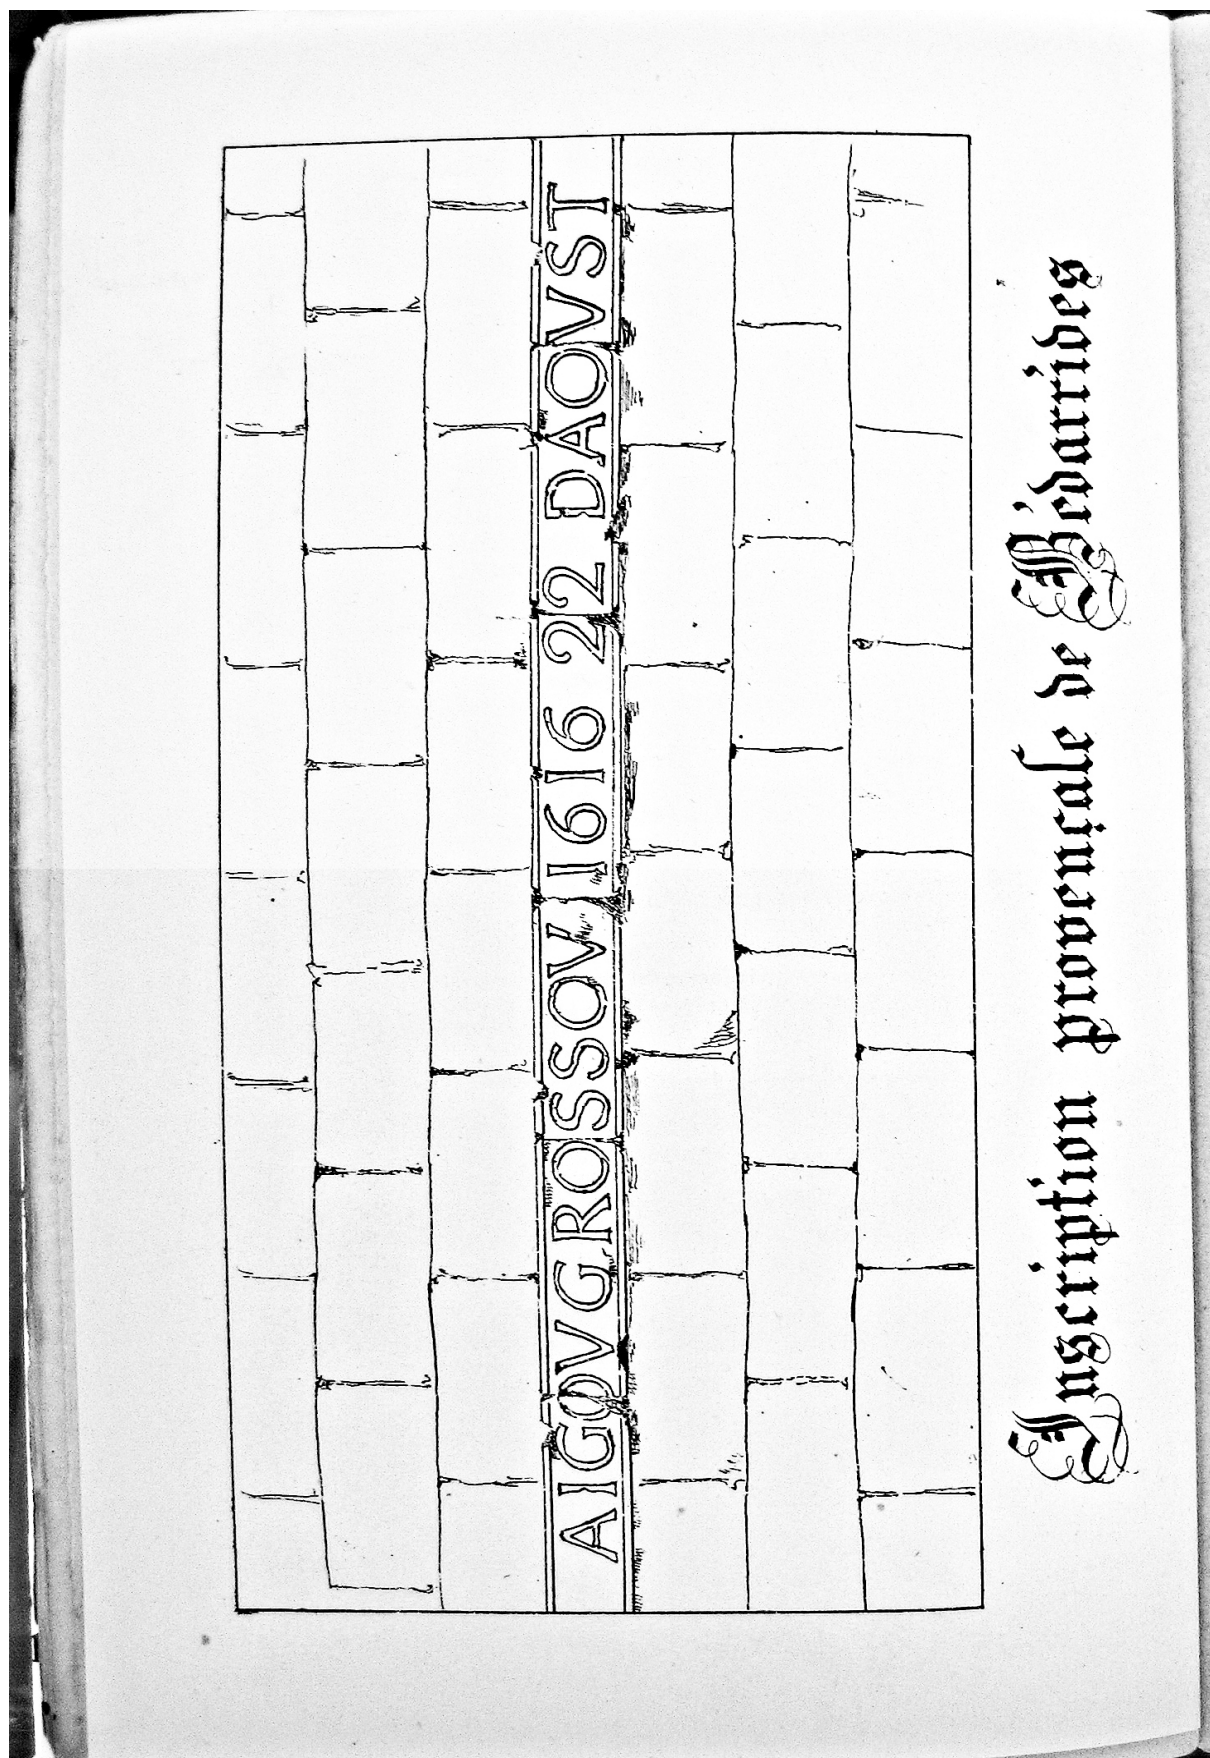 AIGOV GROSSOV 1616 22 DAOVST
Inscription provençale de Bédarrides